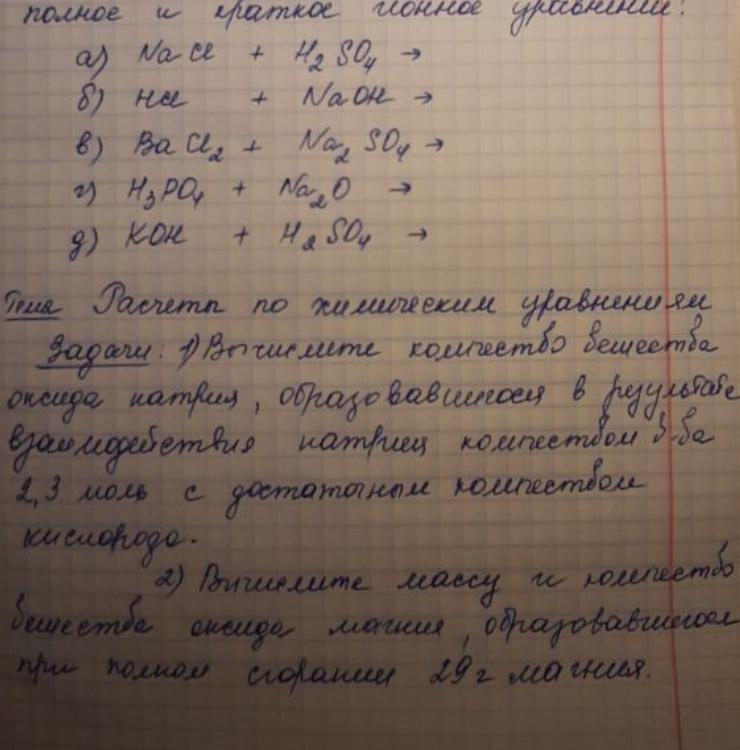 полное и краткое ионное уравнение:
а) NaCl + H₂SO₄ →
б) HCl + NaOH →
в) BaCl₂ + Na₂SO₄ →
г) H₃PO₄ + Na₂O →
д) KOH + H₂SO₄ →
Тема Расчеты по химическим уравнениям
Задачи: 1) Вычислите количество вещества
оксида натрия, образовавшегося в результате
взаимодействия натрия количеством в-ва
2,3 моль с достаточным количеством
кислорода.
2) Вычислите массу и количество
вещества оксида магния, образовавшегося
при полном сгорании 29 г магния.